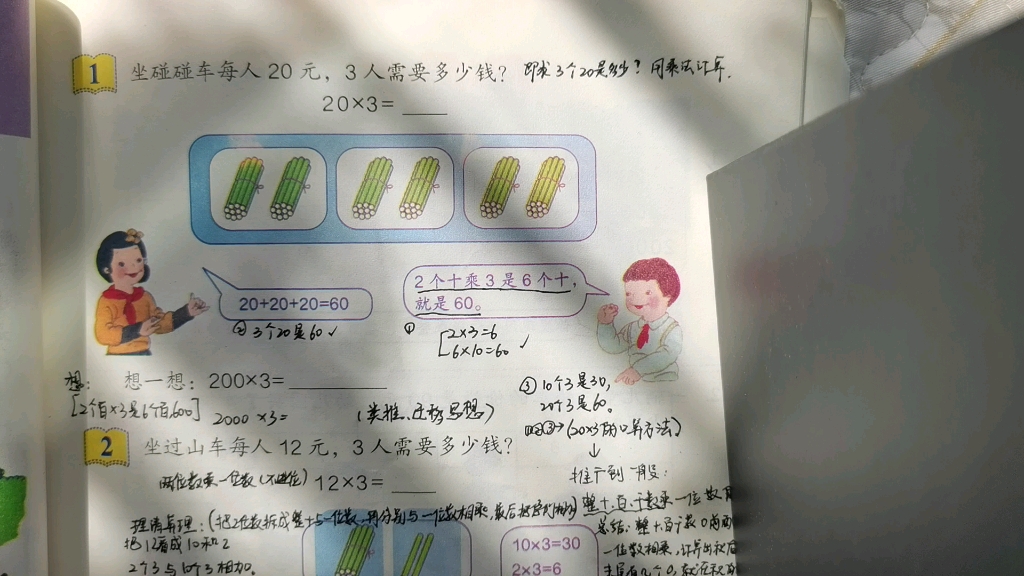 1 坐碰碰车每人20元，3人需要多少钱？ 即求3个20是多少？用乘法计算.
20×3=
20+20+20=60
2个十乘3是6个十，
就是60。
② 3个20是60✓
① 2×3=6
6×10=60 ✓
想：
想一想：200×3=
[2个百×3是6个百,600]
2000×3=
③ 10个3是30，
20个3是60。
(20×3的口算方法)
↓
推广到一般：
2 坐过山车每人12元，3人需要多少钱？
两位数乘一位数(不进位)
12×3=
整十、百、千数乘一位数
理清算理：(把2位数拆成整十与一位数，再分别与一位数相乘，最后
把12看成10和2
2个3与10个3相加。
总结：整十百千数0前面
一位数相乘，计算出积后
10×3=30
2×3=6